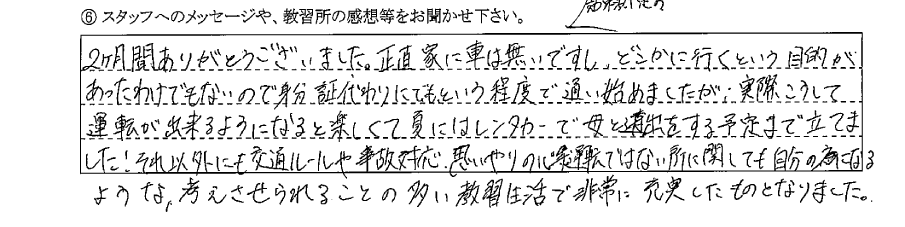 ⑥ スタッフへのメッセージや、教習所の感想等をお聞かせ下さい。
2ヶ月間ありがとうございました。正直家に車は無いですし、どこかに行くという目的が
あったわけでもないので身分証代わりにでもという程度で通い始めましたが、実際こうして
運転が出来るようになると楽しくて夏にはレンタカーで母と遠出をする予定まで立てま
した！それ以外にも交通ルールや事故対応、思いやりの心等運転ではない所に関しても自分の為になる
ような、考えさせられることの多い教習生活で非常に充実したものとなりました。